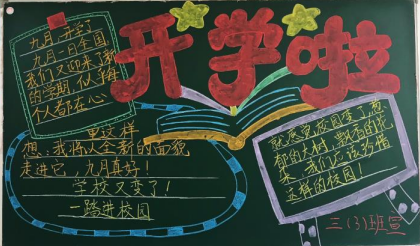 开学啦
九月，开학了
九月一日全国
我们又迎来了新
的学期，似乎每
个人都在心
里这样
想：我将以全新的面貌
走进它，九月真好！
学校又变了！
一踏进校园
就感觉校园变了葱
郁的大树，
我们应该珍惜
这样的校园！
三（3）班宣